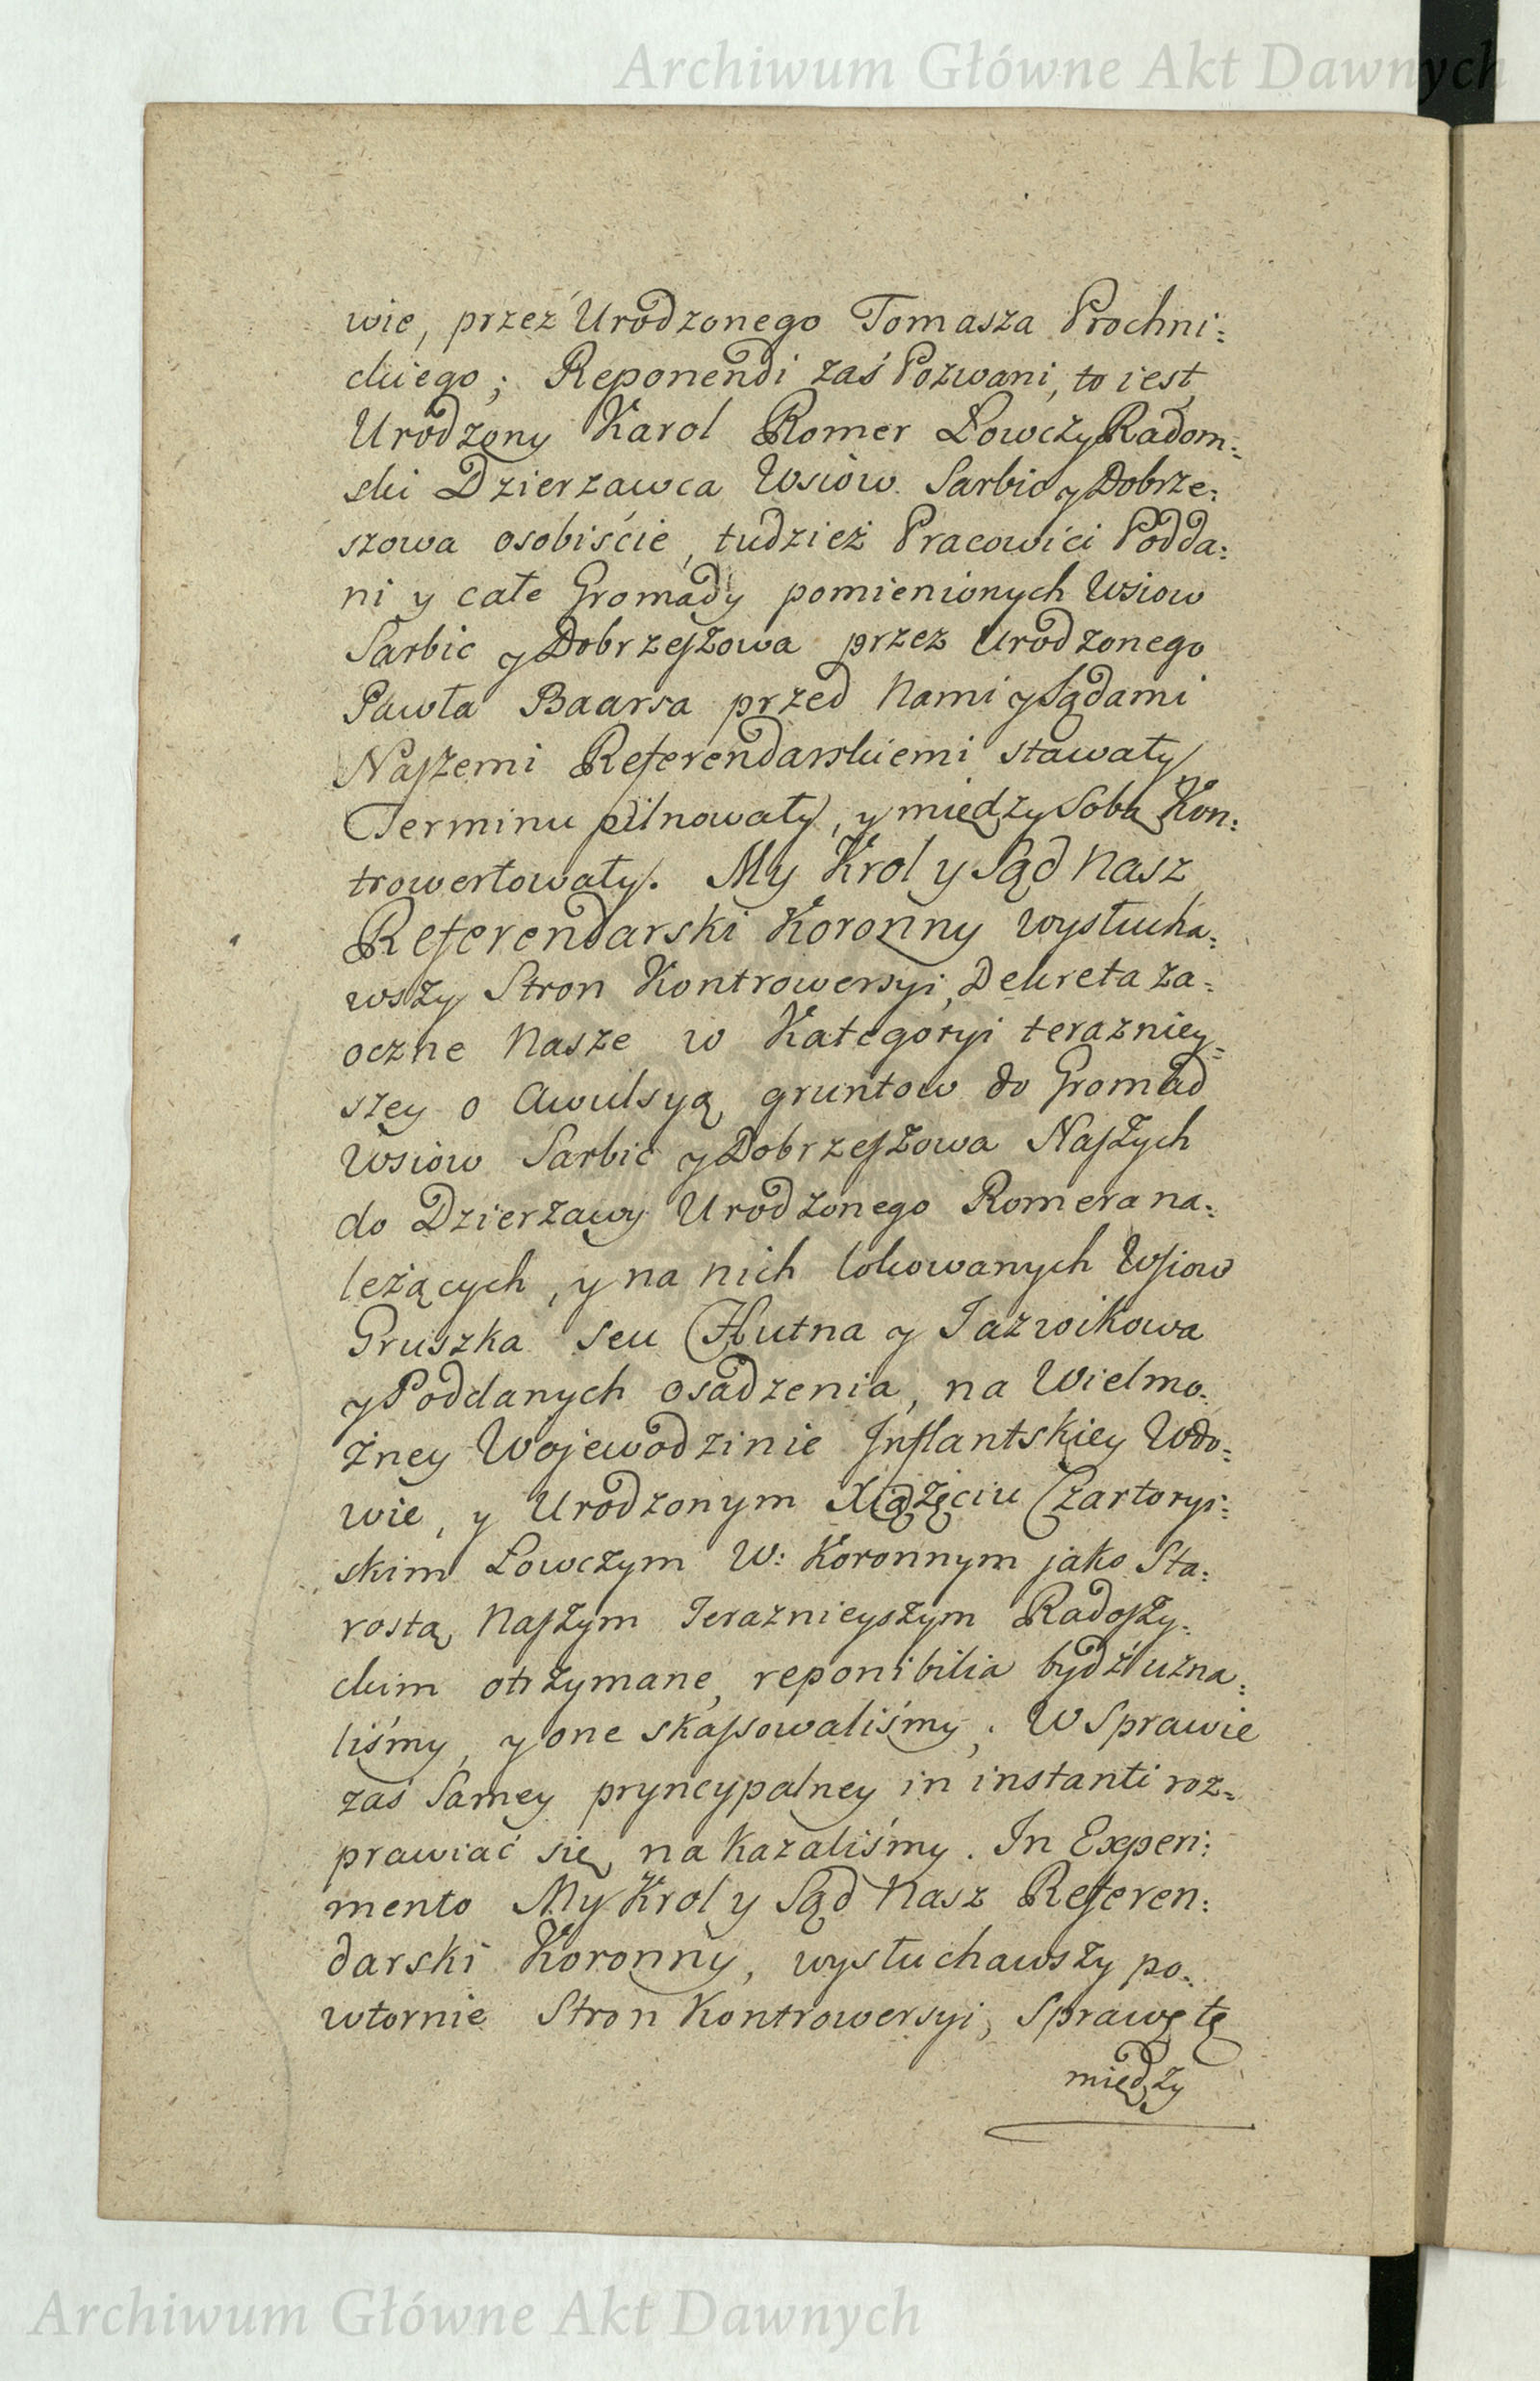 Archiwum Główne Akt Dawnych
wie, przez Urodzonego Tomasza Prochni:
ckiego; Reponendi zaś Pozwani, to iest
Urodzony Karol Romer Łowczy Radom:
ski Dzierzawca Wsiow Sarbic y Dobrze:
szowa osobiście, tudzież Pracowici Podda:
ni y całe Gromady pomienionych Wsiow
Sarbic y Dobrzeszowa przez Urodzonego
Pawła Baarsa przed Nami y Sądami
Naszemi Referendarskiemi stawały
Terminu pilnowały, y między Sobą Kon:
trowertowały. My Krol y Sąd Nasz
Referendarski Koronny wysłucha:
wszy Stron Kontrowersyi, Dekreta za:
oczne Nasze w Kategoryi terazniey:
szey o Awulsyą gruntow do Gromad
Wsiow Sarbic y Dobrzeszowa Naszych
do Dzierzawy Urodzonego Romera na:
leżących, y na nich lokowanych Wsiow
Gruszka seu Hutna y Jazwikowa
y Poddanych osadzenia, na Wielmo:
żney Wojewodzinie Inflantskiey Wdo:
wie, y Urodzonym Xiążęciu Czartorys:
skim Łowczym W: Koronnym jako Sta:
rostą Naszym Teraznieyszym Radoszy:
ckim otrzymane, reponibilia bydź uzna:
liśmy, y one skassowaliśmy; W Sprawie
zaś Samey pryncypalney in instanti roz:
prawiać się nakazaliśmy. In Experi:
mento My Krol y Sąd Nasz Referen:
darski Koronny, wysłuchawszy po:
wtornie Stron Kontrowersyi, Sprawę tę
między
Archiwum Główne Akt Dawnych